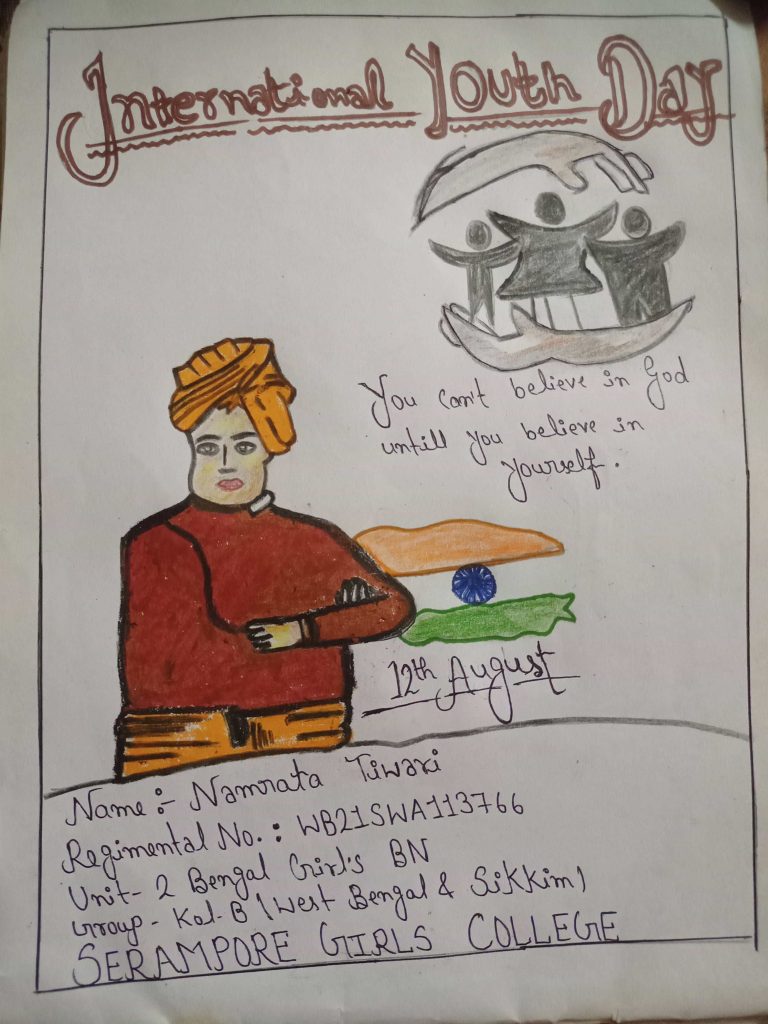 International Youth Day
You can't believe in God
untill you believe in
yourself.
12th August
Name :- Namrata Tiwari
Regimental No. : WB21SWA113766
Unit- 2 Bengal Girl's BN
Group - Kol-B (West Bengal & Sikkim)
SERAMPORE GIRLS COLLEGE